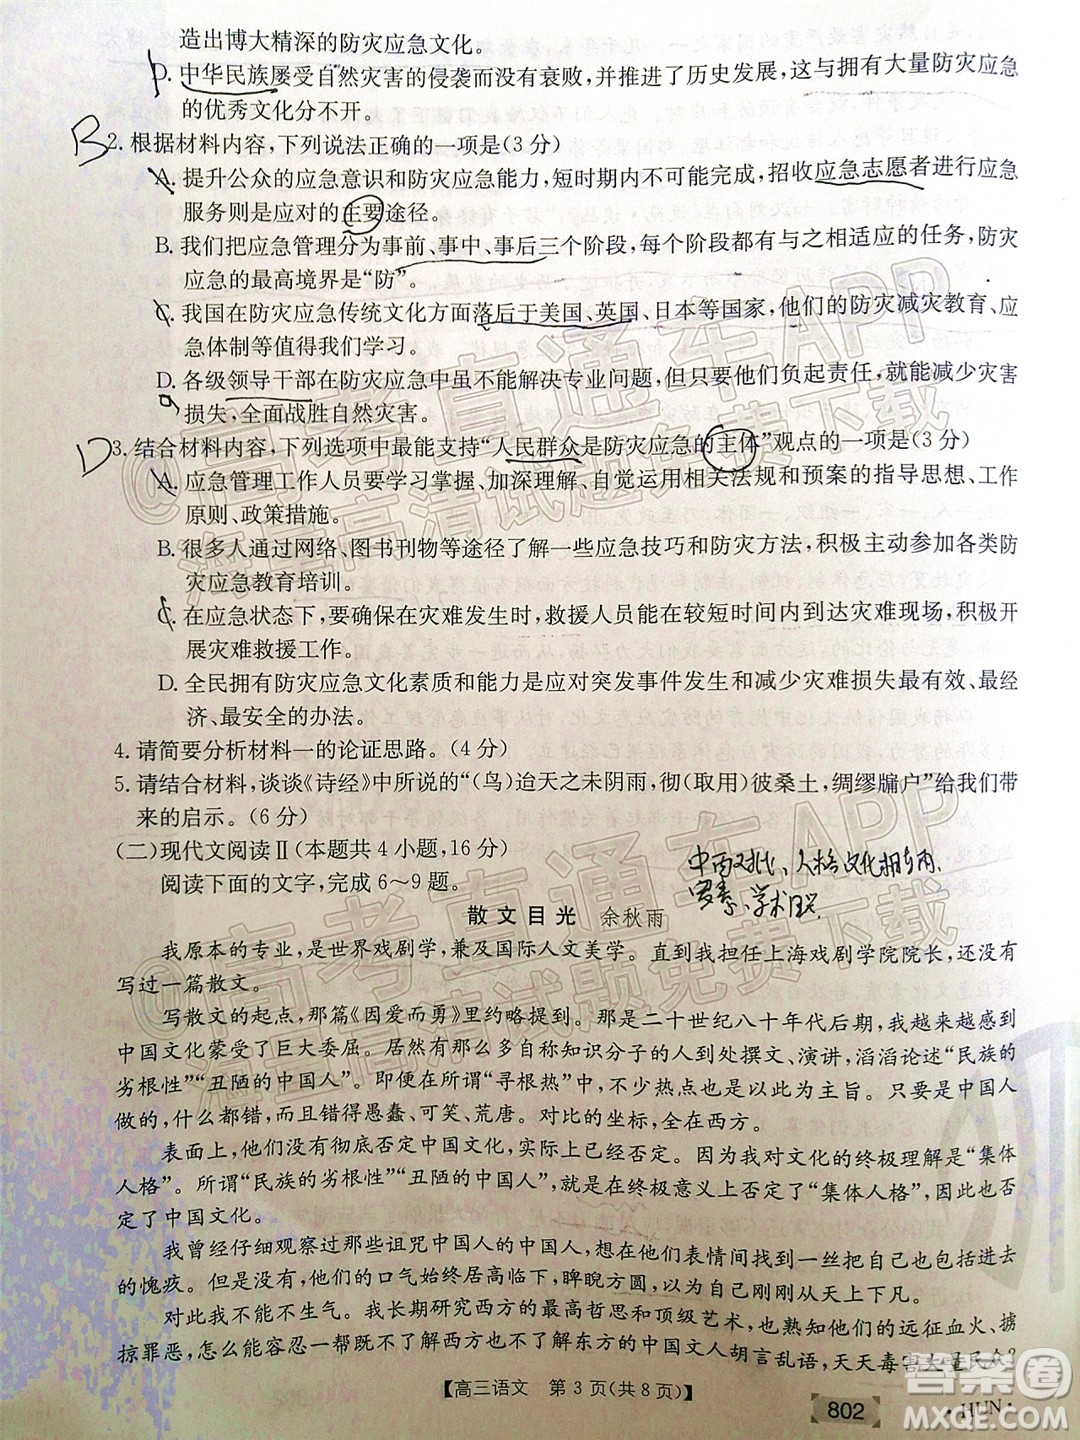 造出博大精深的防灾应急文化。
D. 中华民族屡受自然灾害的侵袭而没有衰败，并推进了历史发展，这与拥有大量防灾应急
的优秀文化分不开。
B 2. 根据材料内容，下列说法正确的一项是(3分)
A. 提升公众的应急意识和防灾应急能力，短时期内不可能完成，招收应急志愿者进行应急
服务则是应对的主要途径。
B. 我们把应急管理分为事前、事中、事后三个阶段，每个阶段都有与之相适应的任务，防灾
应急的最高境界是“防”。
C. 我国在防灾应急传统文化方面落后于美国、英国、日本等国家，他们的防灾减灾教育、应
急体制等值得我们学习。
D. 各级领导干部在防灾应急中虽不能解决专业问题，但只要他们负起责任，就能减少灾害
损失，全面战胜自然灾害。
D 3. 结合材料内容，下列选项中最能支持“人民群众是防灾应急的主体”观点的一项是(3分)
A. 应急管理工作人员要学习掌握、加深理解、自觉运用相关法规和预案的指导思想、工作
原则、政策措施。
B. 很多人通过网络、图书刊物等途径了解一些应急技巧和防灾方法，积极主动参加各类防
灾应急教育培训。
C. 在应急状态下，要确保在灾难发生时，救援人员能在较短时间内到达灾难现场，积极开
展灾难救援工作。
D. 全民拥有防灾应急文化素质和能力是应对突发事件发生和减少灾难损失最有效、最经
济、最安全的办法。
4. 请简要分析材料一的论证思路。(4分)
5. 请结合材料，谈谈《诗经》中所说的“(鸟)迨天之未阴雨，彻(取用)彼桑土，绸缪牖户”给我们带
来的启示。(6分)
(二)现代文阅读Ⅱ(本题共4小题，16分)
阅读下面的文字，完成6～9题。
中西对比、人格文化
学术
散文目光 余秋雨
我原本的专业，是世界戏剧学，兼及国际人文美学。直到我担任上海戏剧学院院长，还没有
写过一篇散文。
写散文的起点，那篇《因爱而勇》里约略提到。那是二十世纪八十年代后期，我越来越感到
中国文化蒙受了巨大委屈。居然有那么多自称知识分子的人到处撰文、演讲，滔滔论述“民族的
劣根性”“丑陋的中国人”。即便在所谓“寻根热”中，不少热点也都以此为主旨。只要是中国人
做的，什么都错，而且错得愚蠢、可笑、荒唐。对比的坐标，全在西方。
表面上，他们没有彻底否定中国文化，实际上已经否定。因为我对文化的终极理解是“集体
人格”。所谓“民族的劣根性”“丑陋的中国人”，在终极意义上否定了“集体人格”，因此也否
定了中国文化。
我曾经仔细观察过那些诅咒中国人的中国人，想从他们表情间找到一丝把自己也包括进去
的愧疚。但是没有，他们的口气始终居高临下，睥睨方圆，以为自己刚刚从天上下凡。
对此我不能不生气。我长期研究西方的最高哲思和顶级艺术，也熟知他们的远征血火、掳
掠罪恶，怎么能容忍一帮既不了解西方也不了解东方的中国文人胡言乱语，天天毒害大量民众？
【高三语文 第3页(共8页)】
802
·HUN·
@高考直通车APP
海量高清试题免费下载
@高考直通车APP
海量高清试题免费下载
答案圈
MXQE.COM